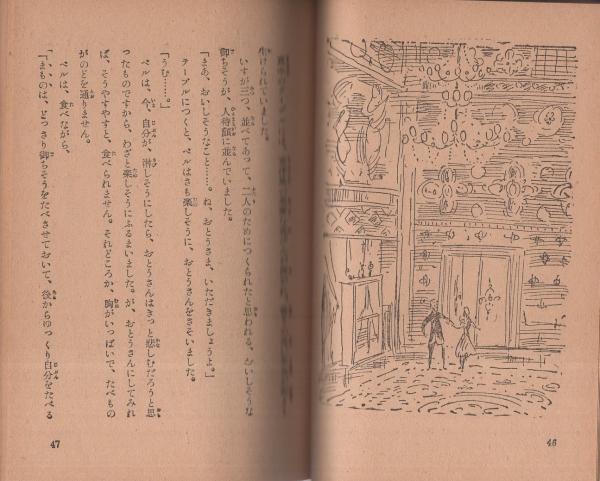 生けられていました。
いすが三つ、並べてあって、二人のためにつくられたと思われる、おいしそうな
御ちそうが、人待顔に並んでいました。
「まあ、おいしそうなこと……。ね、おとうさま、いただきましょうよ。」
テーブルにつくと、ベルはさも楽しそうに、おとうさんをさそいました。
「うむ……。」
ベルは、今、自分が、淋しそうにしたら、おとうさんはきっと悲しむだろうと思
ったものですから、わざと楽しそうにふるまいました。が、おとうさんにしてみれ
ば、そうやすやすと、食べられません。それどころか、胸がいっぱいで、たべもの
がのどを通りません。
ベルは、食べながら、
「まものは、どっさり御ちそうをたべさせておいて、後からゆっくり自分をたべる
47
46